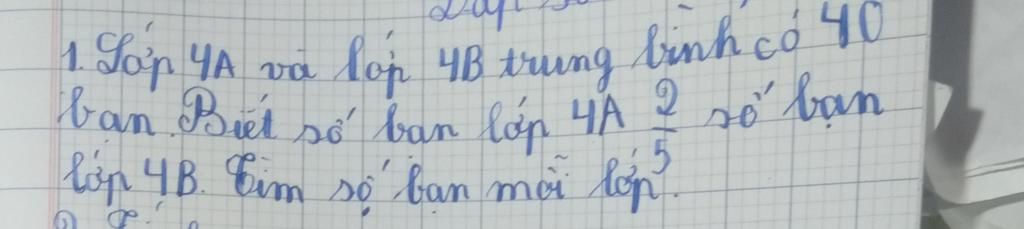 1. Lớp 4A và lớp 4B trung bình có 40
bạn. Biết số bạn lớp 4A 2/5 số bạn
lớp 4B. Tìm số bạn mỗi lớp.